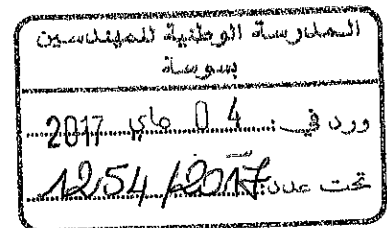 المدرسة الوطنية للمهندسين
بسوسة
ورد في : 04 ماي 2017
تحت عدد: 1254/2017